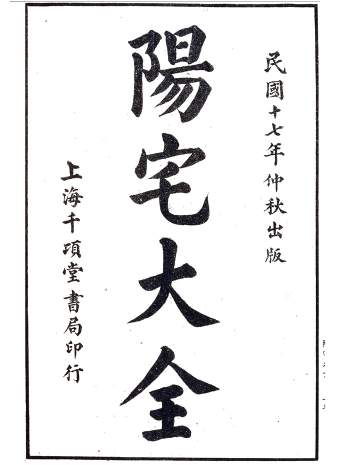 民國十七年仲秋出版
陽宅大全
上海千頃堂書局印行